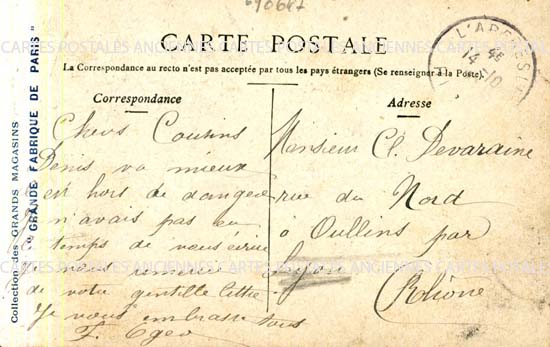 CARTE POSTALE
La Correspondance au recto n'est pas acceptée par tous les pays étrangers (Se renseigner à la Poste)
Correspondance
Chers Cousins
Denis va mieux
est hors de danger
n'avais pas eu
le temps de vous écrire
Je vous remercie
de votre gentille lettre
Je vous embrasse tous
F.
Adresse
Monsieur Cl. Devaraine
rue du Nord
à Oullins par
Lyon
Rhône
L'ARBRESLE
14 10
Collection des GRANDS MAGASINS
"GRANDE FABRIQUE DE PARIS"
CARTES POSTALES ANCIENNES